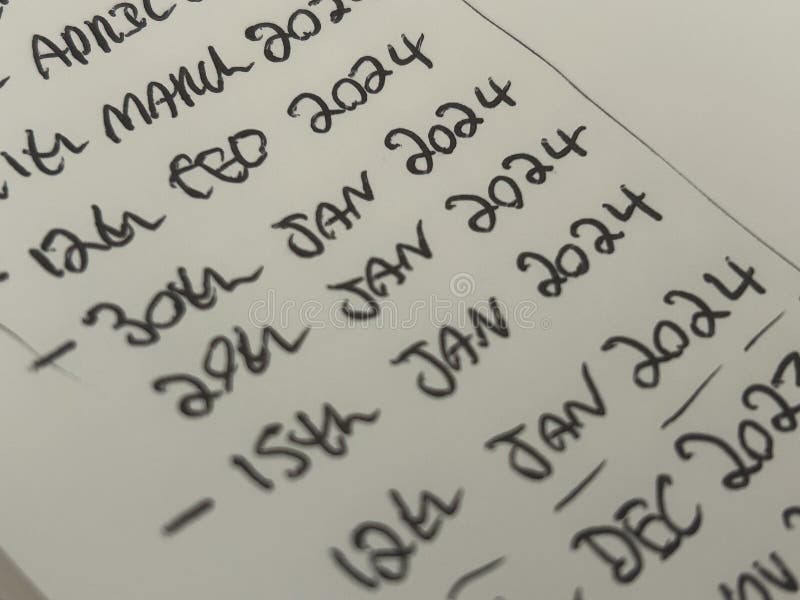 APRIL
MARCH 202
- 12th FEB 2024
- 30th JAN 2024
29th JAN 2024
- 15th JAN 2024
12th JAN 2024
DEC 2023
dreamstime.com